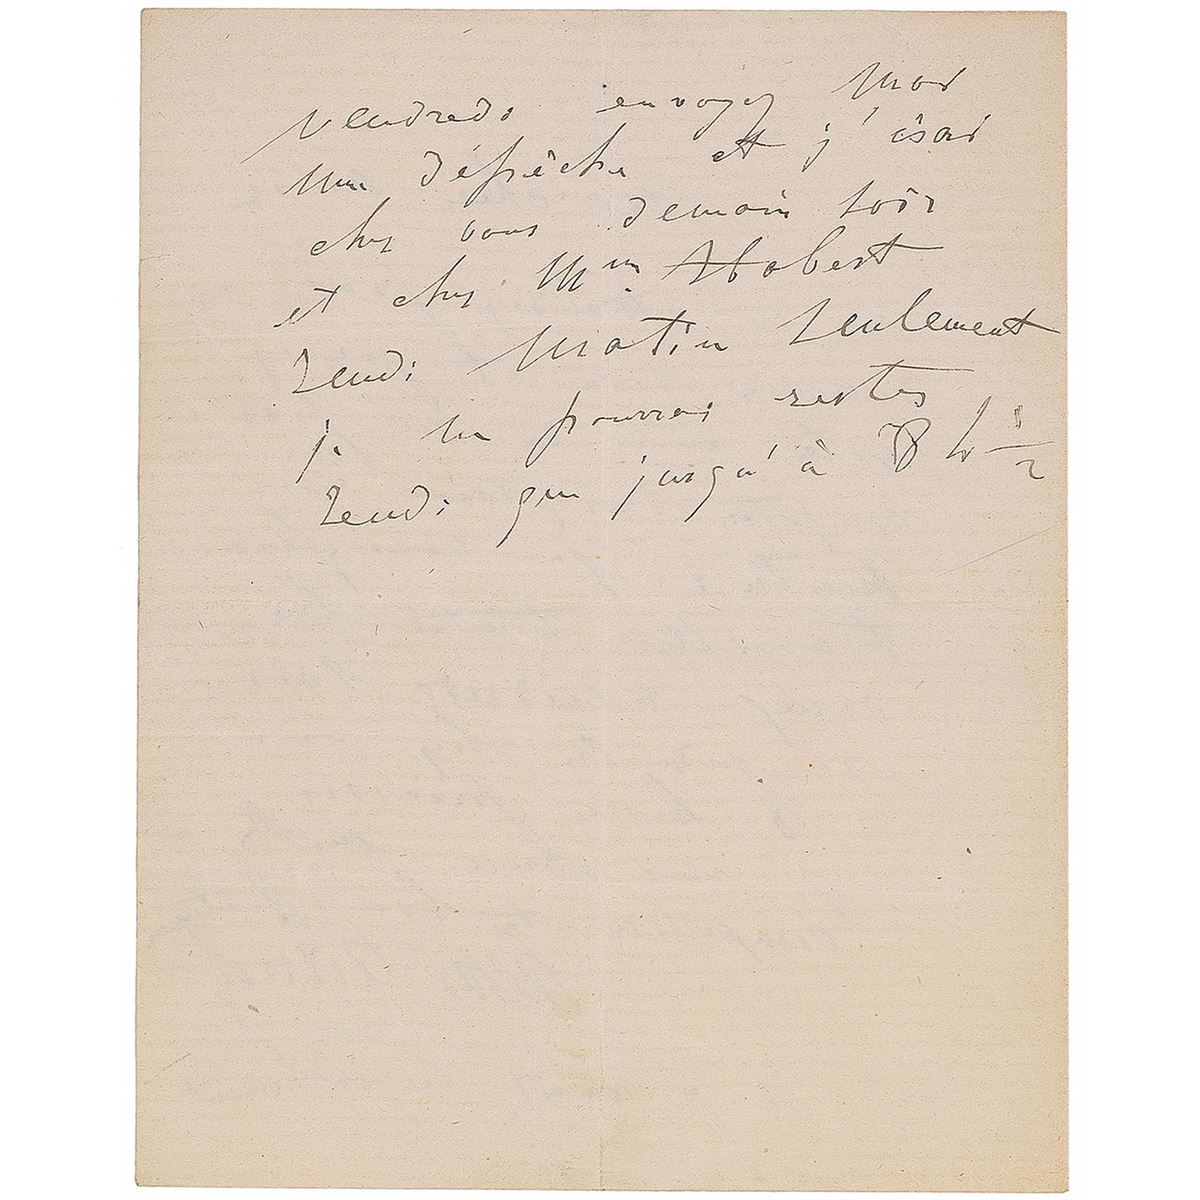 vendredi envoyez moi
une dépêche et j'irai
chez vous demain soir
et chez Mme Hobert
lundi matin seulement
je ne pourrai rester
lundi que jusqu'à 8 h ½